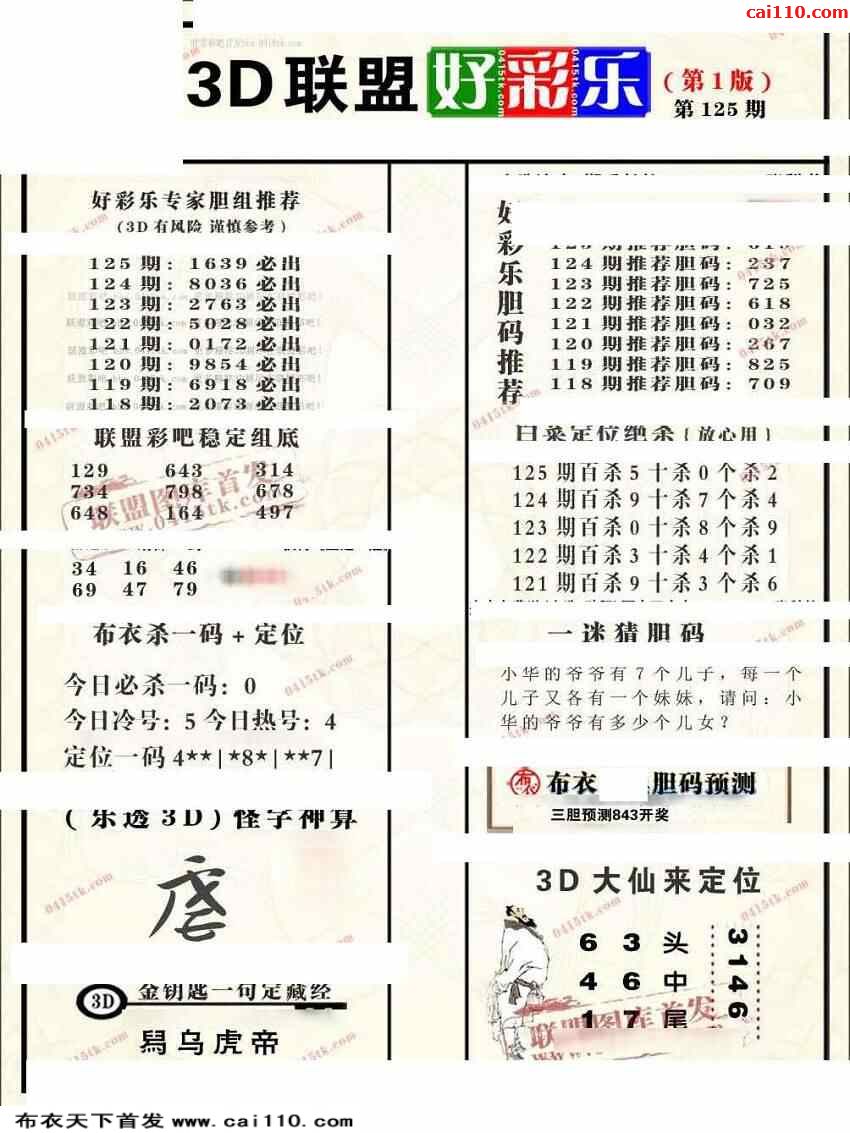 cai110.com
3D联盟好彩乐
(第1版)
第125期
好彩乐专家胆组推荐
(3D有风险 谨慎参考)
125期:1639必出
124期:8036必出
123期:2763必出
122期:5028必出
121期:0172必出
120期:9854必出
119期:6918必出
118期:2073必出
联盟彩吧稳定组底
129 643 314
734 798 678
648 164 497
34 16 46
69 47 79
布衣杀一码+定位
今日必杀一码:0
今日冷号:5 今日热号:4
定位一码4**|*8*|**7|
(乐透3D)怪字神算
3D
金钥匙一句定藏经
舄乌虎帝
好彩乐胆码推荐
124期推荐胆码:237
123期推荐胆码:725
122期推荐胆码:618
121期推荐胆码:032
120期推荐胆码:267
119期推荐胆码:825
118期推荐胆码:709
白菜定位绝杀(放心用)
125期百杀5十杀0个杀2
124期百杀9十杀7个杀4
123期百杀0十杀8个杀9
122期百杀3十杀4个杀1
121期百杀9十杀3个杀6
一迷猜胆码
小华的爷爷有7个儿子,每一个
儿子又各有一个妹妹,请问:小
华的爷爷有多少个儿女?
布衣 胆码预测
三胆预测843开奖
3D大仙来定位
6 3 头
4 6 中
1 7 尾
3146
联盟图库首发
www.0415tk.com
布衣天下首发 www.cai110.com